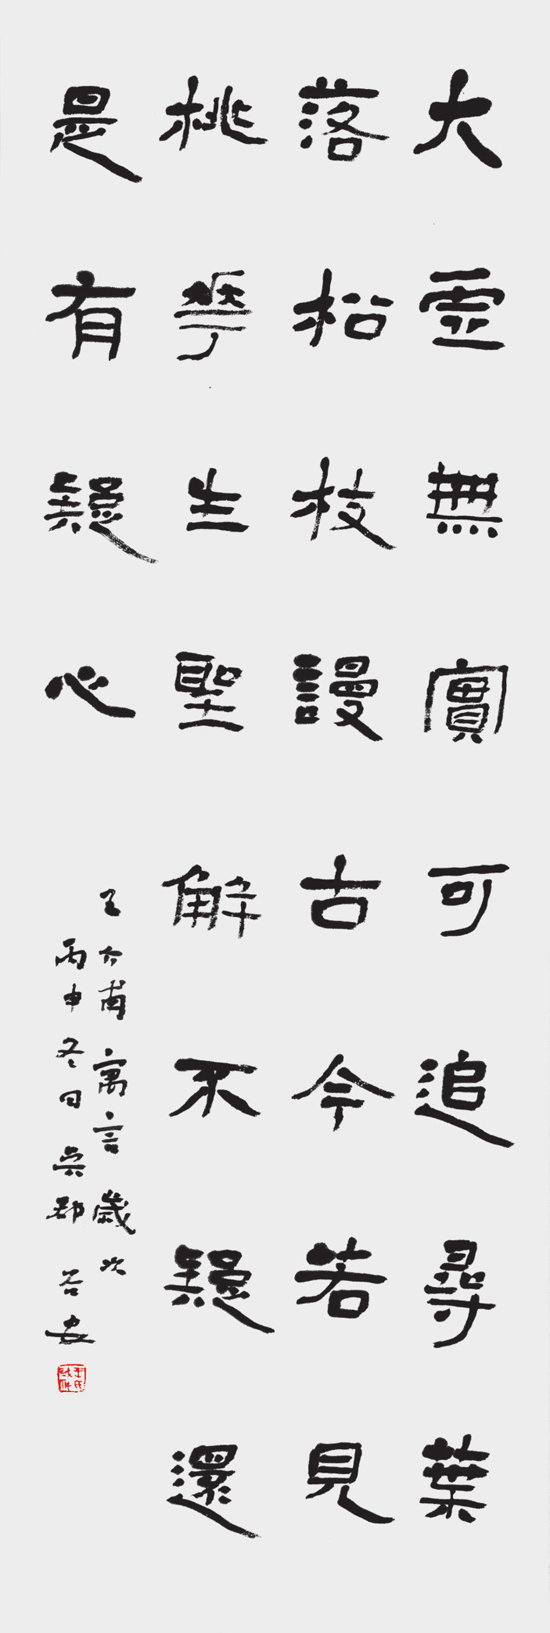 大虛無實可追尋葉
落松枝謾古今若見
桃華生聖解不疑還
是有疑心
王介甫寓言歲次
丙申冬日吳郡谷安